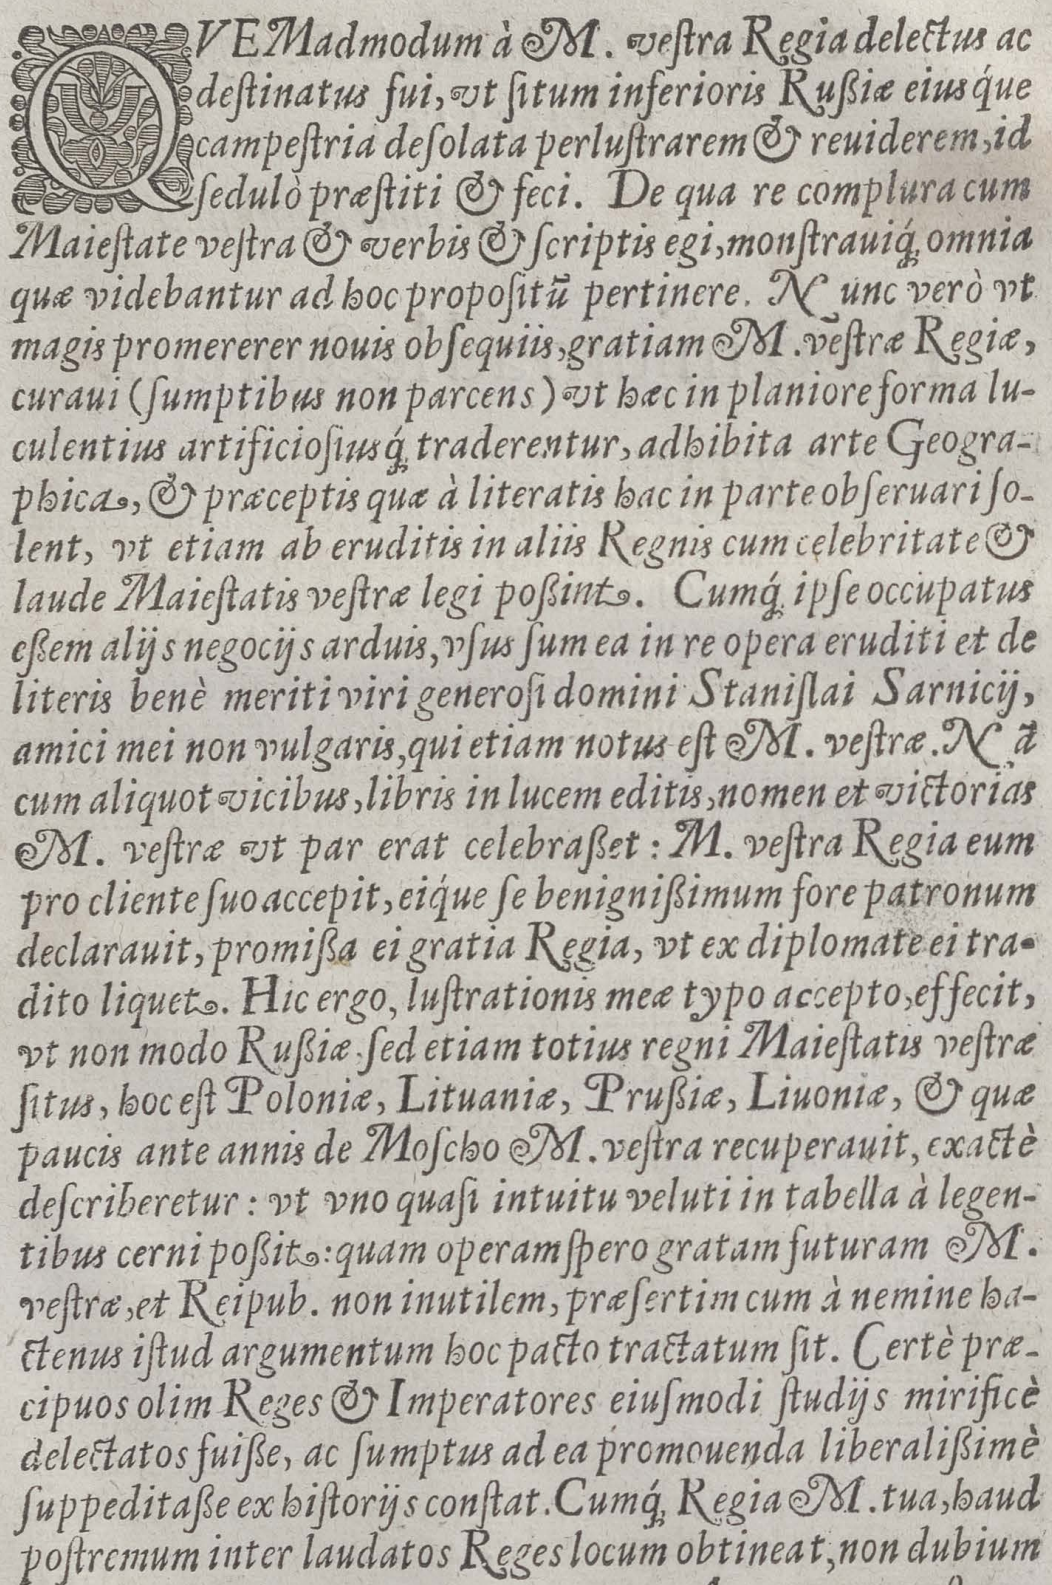 QVEMadmodum à M. veſtra Regia delectus ac
deſtinatus fui, vt ſitum inferioris Rußiæ eiusq́ue
campeſtria deſolata perluſtrarem & reuiderem, id
ſedulò præſtiti & feci. De qua re complura cum
Maieſtate veſtra & verbis & ſcriptis egi, monſtrauiq́; omnia
quæ videbantur ad hoc propoſitū pertinere. Nunc verò vt
magis promererer nouis obſequiis, gratiam M. veſtræ Regiæ,
curaui (ſumptibus non parcens) vt hæc in planiore forma lu-
culentius artificioſiusq́; traderentur, adhibita arte Geogra-
phica, & præceptis quæ à literatis hac in parte obſeruari ſo-
lent, vt etiam ab eruditis in aliis Regnis cum celebritate &
laude Maieſtatis veſtræ legi poßint. Cumq́; ipſe occupatus
eßem alijs negocijs arduis, vſus ſum ea in re opera eruditi et de
literis benè meriti viri generoſi domini Staniſlai Sarnicij,
amici mei non vulgaris, qui etiam notus eſt M. veſtræ. Nā
cum aliquot vicibus, libris in lucem editis, nomen et victorias
M. veſtræ vt par erat celebraßet: M. veſtra Regia eum
pro cliente ſuo accepit, eiq́ue ſe benignißimum fore patronum
declarauit, promißa ei gratia Regia, vt ex diplomate ei tra-
dito liquet. Hic ergo, luſtrationis meæ typo accepto, effecit,
vt non modo Rußiæ, ſed etiam totius regni Maieſtatis veſtræ
ſitus, hoc eſt Poloniæ, Lituaniæ, Prußiæ, Liuoniæ, & quæ
paucis ante annis de Moſcho M. veſtra recuperauit, exactè
deſcriberetur: vt vno quaſi intuitu veluti in tabella à legen-
tibus cerni poßit: quam operam ſpero gratam futuram M.
veſtræ, et Reipub. non inutilem, præſertim cum à nemine ha-
ctenus iſtud argumentum hoc pacto tractatum ſit. Certè præ-
cipuos olim Reges & Imperatores eiuſmodi ſtudijs mirificè
delectatos fuiße, ac ſumptus ad ea promouenda liberalißimè
ſuppeditaße ex hiſtorijs conſtat. Cumq́; Regia M. tua, haud
poſtremum inter laudatos Reges locum obtineat, non dubium